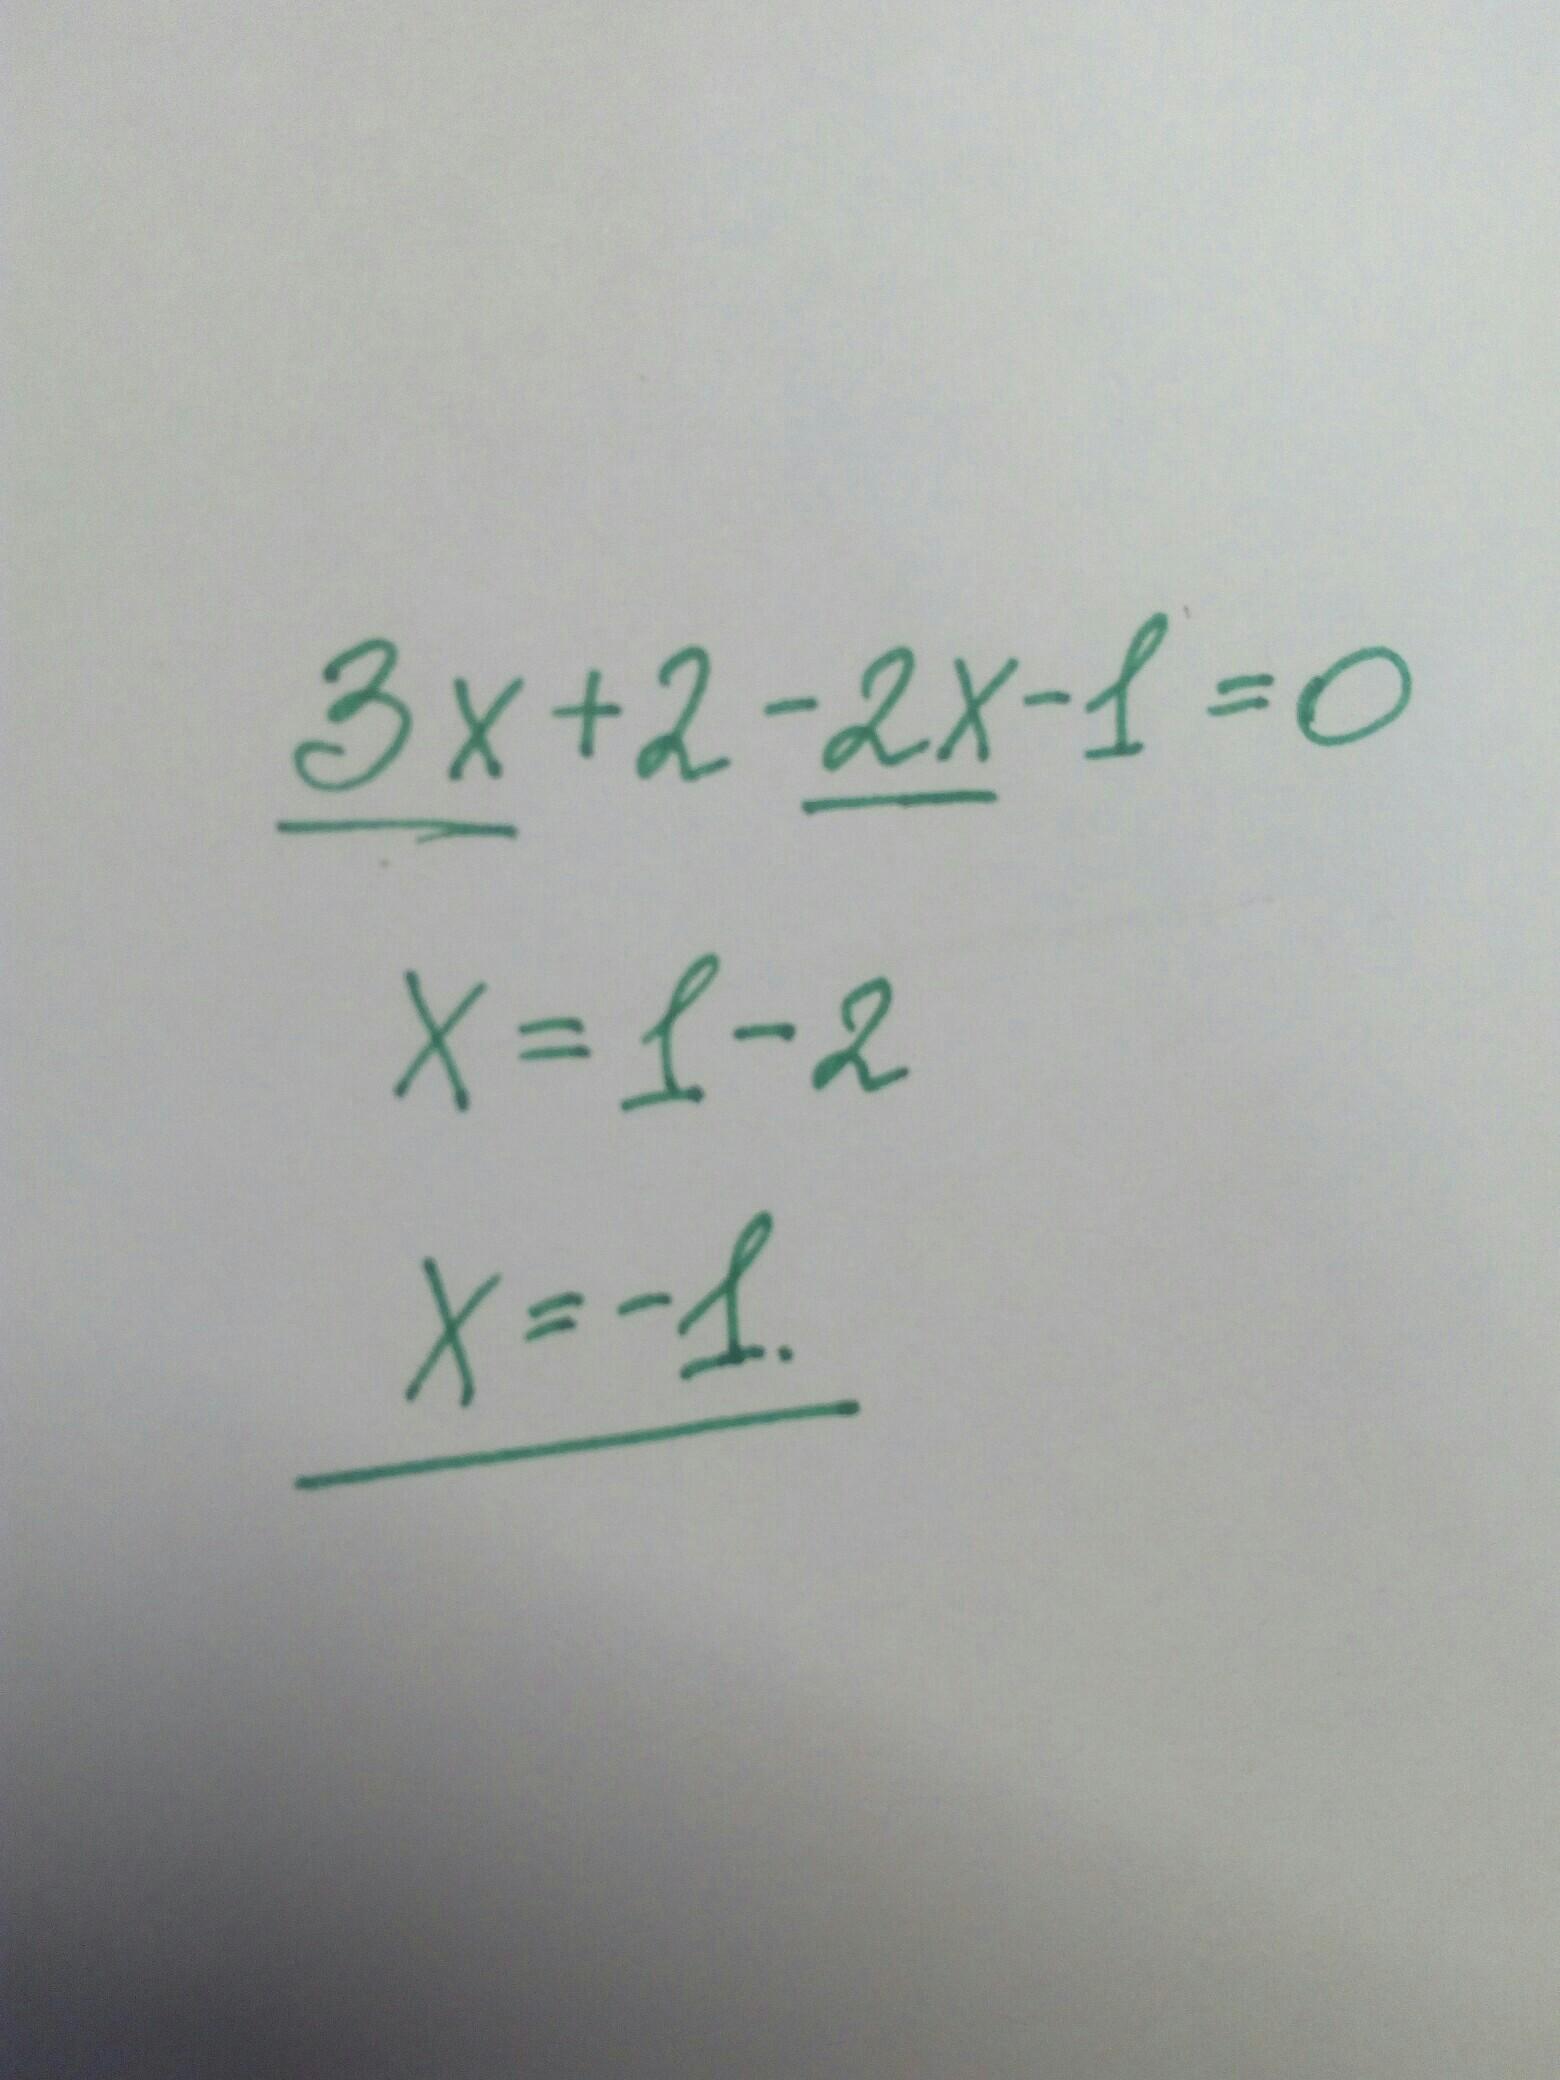 3x+2-2x-1=0
x=1-2
x=-1.